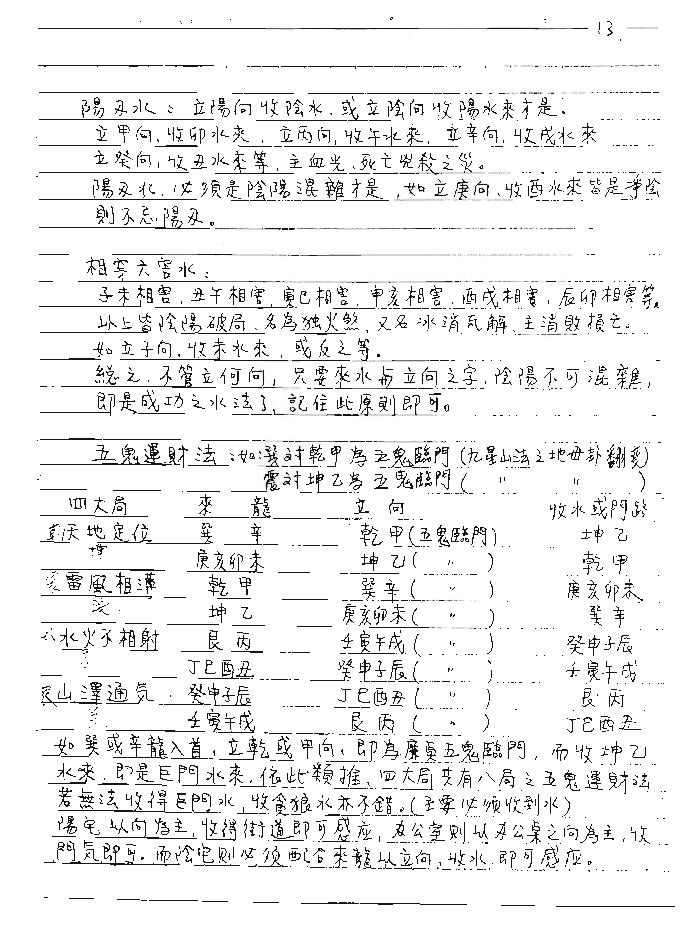 13.
陽刃水：立陽向收陰水，或立陰向收陽水來才是。
立甲向，收卯水來，立丙向，收午水來，立辛向，收戌水來
立癸向，收丑水來等，主血光，死亡兇殺之災。
陽刃水，必須是陰陽混雜才是，如立庚向，收酉水來皆是淨陰
則不忌陽刃。
相穿六害水：
子未相害，丑午相害，寅巳相害，申亥相害，酉戌相害，辰卯相害等。
以上皆陰陽破局，名為独火煞，又名冰消瓦解，主消敗損亡。
如立子向，收未水來，或反之等。
總之，不管立何向，只要來水与立向之字，陰陽不可混雜，
即是成功之水法了，記住此原則即可。
五鬼運財法：如巽对乾甲為五鬼臨門（九星山法之地母卦翻变）
震对坤乙為五鬼臨門（〃 〃）
四大局 來龍 立向 收水或門路
天地定位 巽辛 乾甲（五鬼臨門） 坤乙
庚亥卯未 坤乙（〃） 乾甲
雷風相薄 乾甲 巽辛（〃） 庚亥卯未
坤乙 庚亥卯未（〃） 巽辛
水火不相射 艮丙 壬寅午戌（〃） 癸申子辰
丁巳酉丑 癸申子辰（〃） 壬寅午戌
山澤通気 癸申子辰 丁巳酉丑（〃） 艮丙
壬寅午戌 艮丙（〃） 丁巳酉丑
如巽或辛龍入首，立乾或甲向，即為廉貞五鬼臨門，而收坤乙
水來，即是巨門水來，依此類推，四大局共有八局之五鬼運財法
若無法收得巨門水，收貪狼水亦不錯。（主要必須收到水）
陽宅以向為主，收得街道即可感应，办公室則以办公桌之向為主，收
門気即可。而陰宅則必須配合來龍以立向，收水，即可感应。